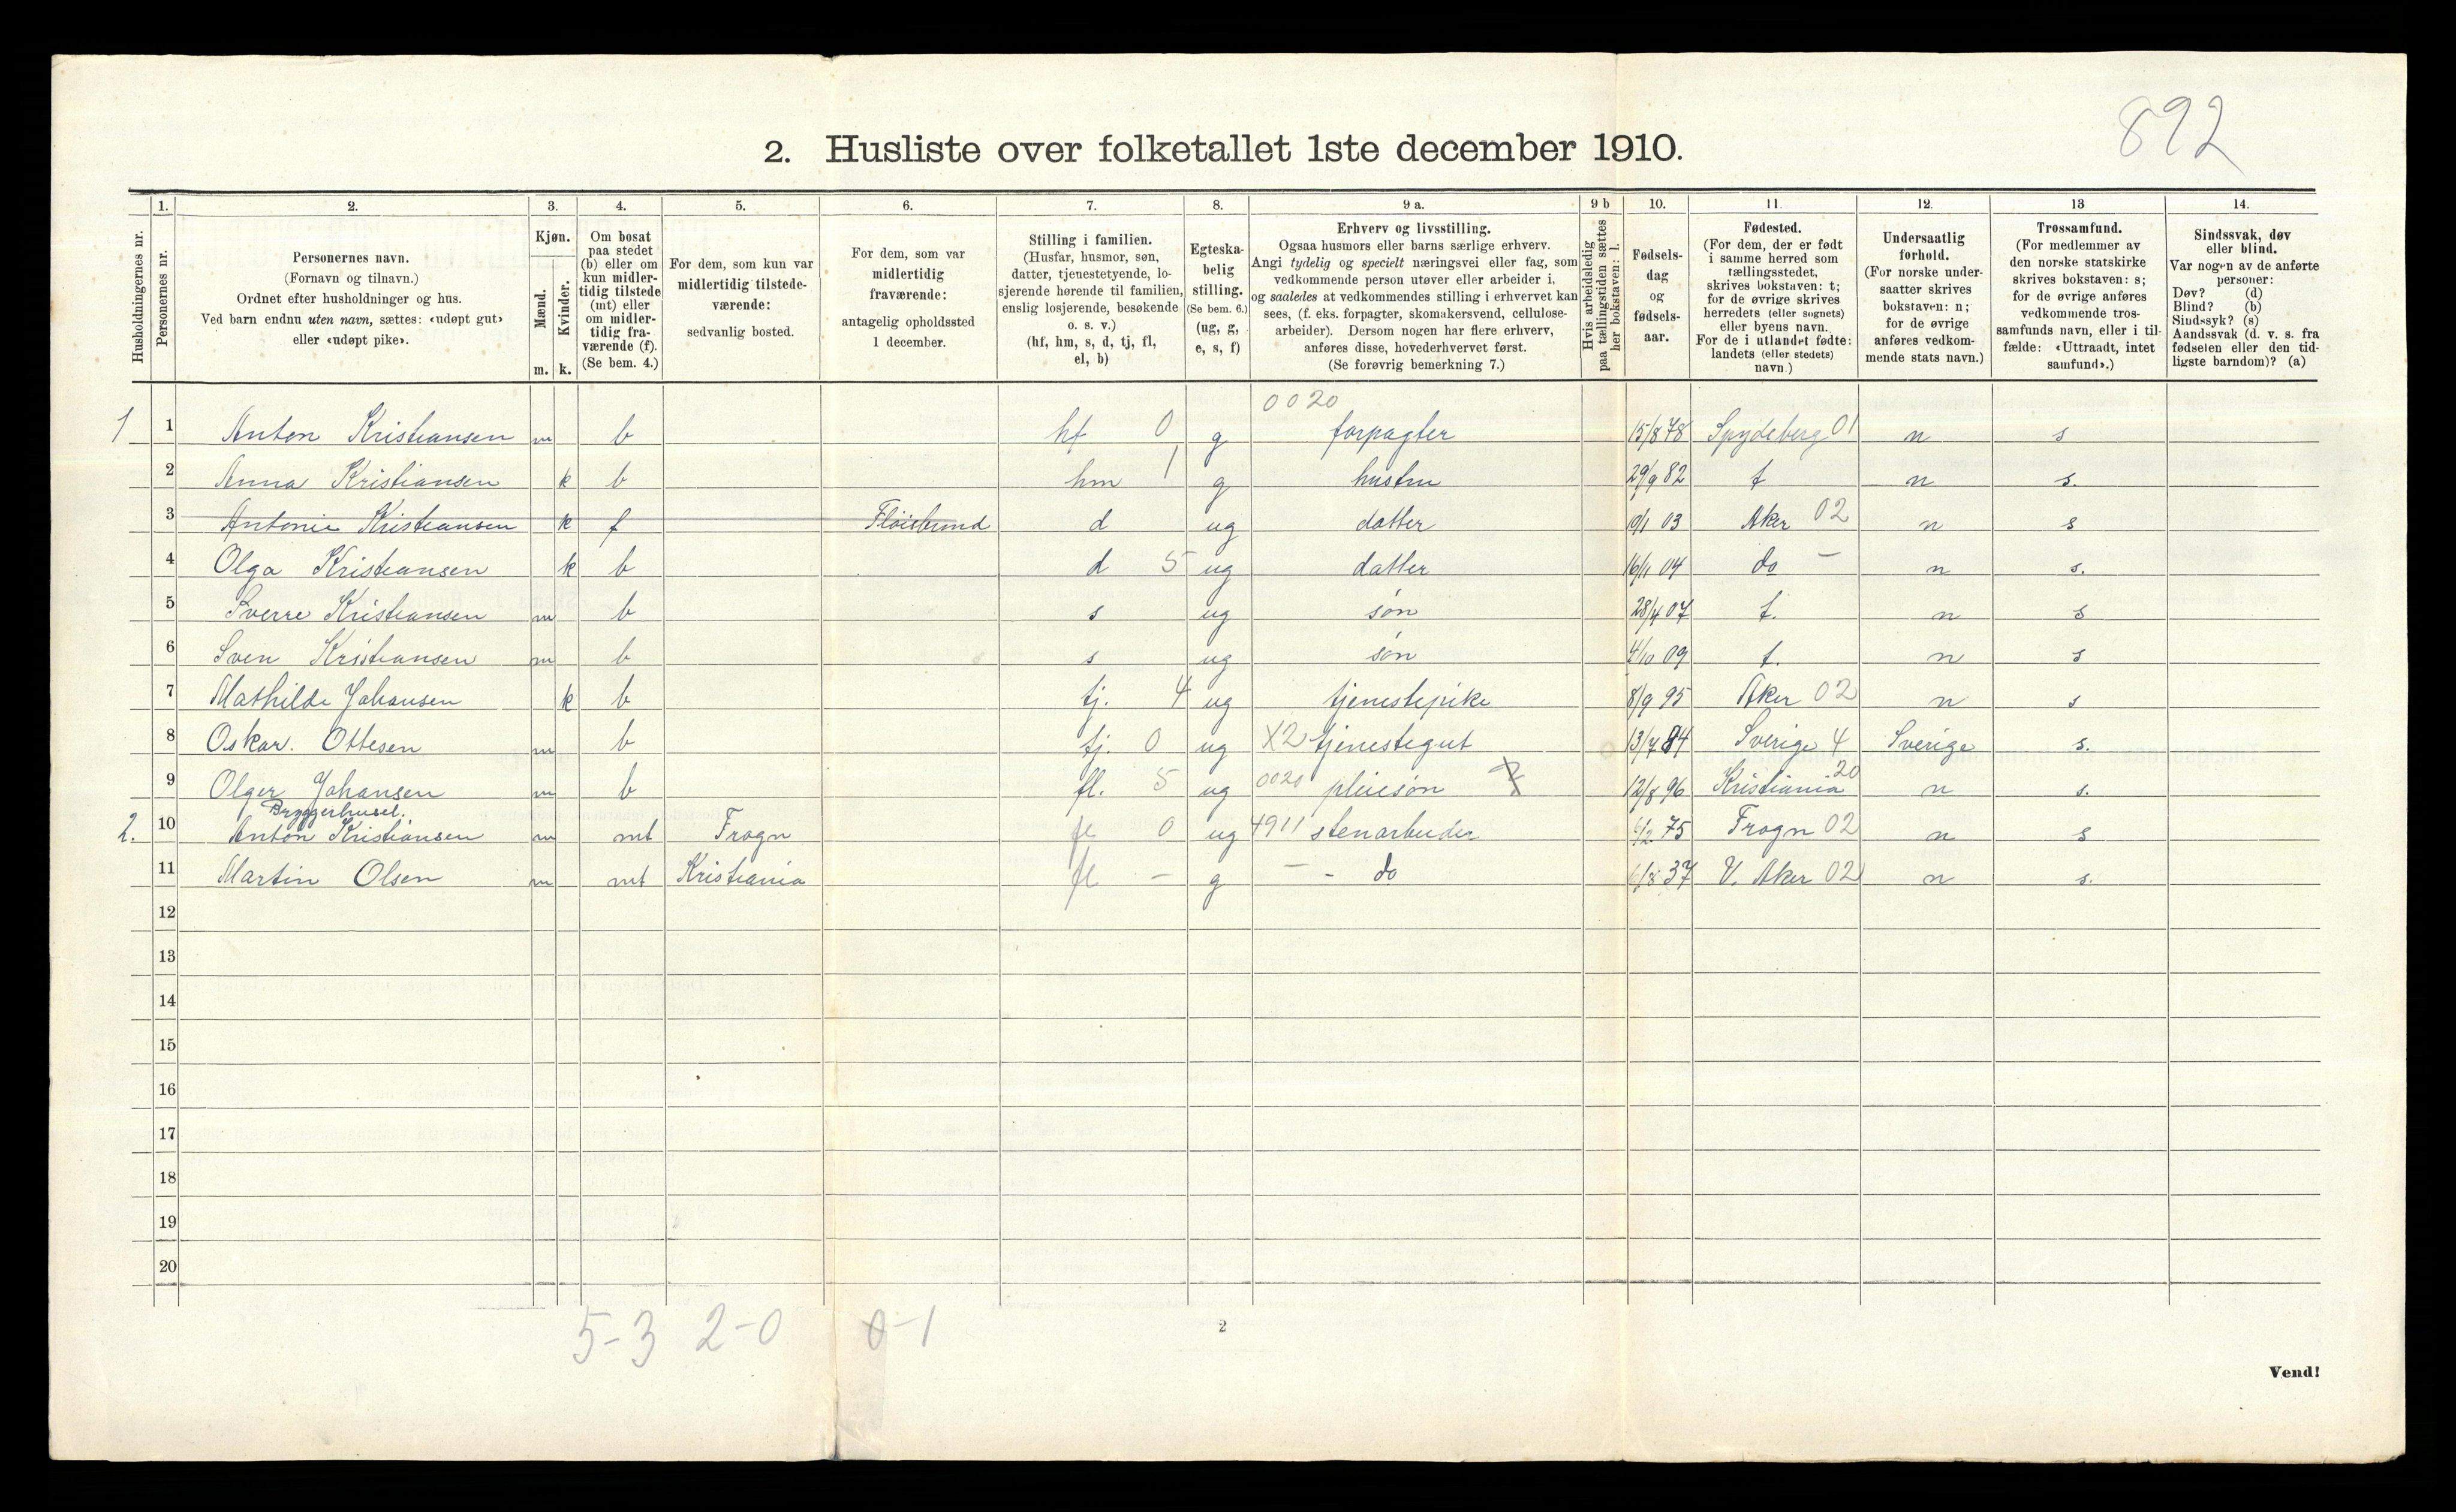 892
2. Husliste over folketallet 1ste december 1910.
Husholdningernes nr.
1.
Personernes nr.
2.
Personernes navn.
(Fornavn og tilnavn.)
Ordnet efter husholdninger og hus.
Ved barn endnu uten navn, sættes: «udøpt gut»
eller «udøpt pike».
3.
Kjøn.
Mænd.
Kvinder.
m. k.
4.
Om bosat
paa stedet
(b) eller om
kun midler-
tidig tilstede
(mt) eller
om midler-
tidig fra-
værende (f).
(Se bem. 4.)
5.
For dem, som kun var
midlertidig tilstede-
værende:
sedvanlig bosted.
6.
For dem, som var
midlertidig
fraværende:
antagelig opholdssted
1 december.
7.
Stilling i familien.
(Husfar, husmor, søn,
datter, tjenestetyende, lo-
sjerende hørende til familien,
enslig losjerende, besøkende
o. s. v.)
(hf, hm, s, d, tj, fl,
el, b)
8.
Egteska-
belig
stilling.
(Se bem. 6.)
(ug, g,
e, s, f)
9 a.
Erhverv og livsstilling.
Ogsaa husmors eller barns særlige erhverv.
Angi tydelig og specielt næringsvei eller fag, som
vedkommende person utøver eller arbeider i,
og saaledes at vedkommendes stilling i erhvervet kan
sees, (f. eks. forpagter, skomakersvend, cellulose-
arbeider). Dersom nogen har flere erhverv,
anføres disse, hovederhvervet først.
(Se forøvrig bemerkning 7.)
9 b
Hvis arbeidsledig
paa tællingstiden sættes
her bokstaven: l.
10.
Fødsels-
dag
og
fødsels-
aar.
11.
Fødested.
(For dem, der er født
i samme herred som
tællingsstedet,
skrives bokstaven: t;
for de øvrige skrives
herredets (eller sognets)
eller byens navn.
For de i utlandet fødte:
landets (eller stedets)
navn.)
12.
Undersaatlig
forhold.
(For norske under-
saatter skrives
bokstaven: n;
for de øvrige
anføres vedkom-
mende stats navn.)
13
Trossamfund.
(For medlemmer av
den norske statskirke
skrives bokstaven: s;
for de øvrige anføres
vedkommende tros-
samfunds navn, eller i til-
fælde: «Uttraadt, intet
samfund».)
14.
Sindssvak, døv
eller blind.
Var nogen av de anførte
personer:
Døv? (d)
Blind? (b)
Sindssyk? (s)
Aandssvak (d. v. s. fra
fødselen eller den tid-
ligste barndom)? (a)
0020
1 1 Anton Kristiansen m b hf 0 g forpagter 15/8 78 Spydeberg 01 n s
2 Anna Kristiansen k b hm 1 g hustru 29/9 82 t n s.
3 Antonie Kristiansen k f Fløisbund d ug datter 19/1 03 Aker 02 n s
4 Olga Kristiansen k b d 5 ug datter 16/11 04 do – n s.
5 Sverre Kristiansen m b s ug søn 28/4 07 t. n s
6 Sven Kristiansen m b s ug søn 4/10 09 t. n s
7 Mathilde Johansen k b tj. 4 ug tjenestepike 8/9 95 Aker 02 n s
8 Oskar. Ottesen m b tj. 0 ug X2 tjenestegut 13/7 84 Sverige 4 Sverige s.
9 Olger Johansen m b fl. 5 ug 0020 pleiesøn 12/8 96 Kristiania 20 n s.
Bryggerhuset.
2. 10 Anton Kristiansen m mt Frogn fl 0 ug 4911 stenarbeider 6/2 75 Frogn 02 n s
11 Martin Olsen m mt Kristiania fl – g – - do 6/8 37 V. Aker 02 n s.
12
13
14
15
16
17
18
19
20
5-3 2-0 0-1
2
Vend!